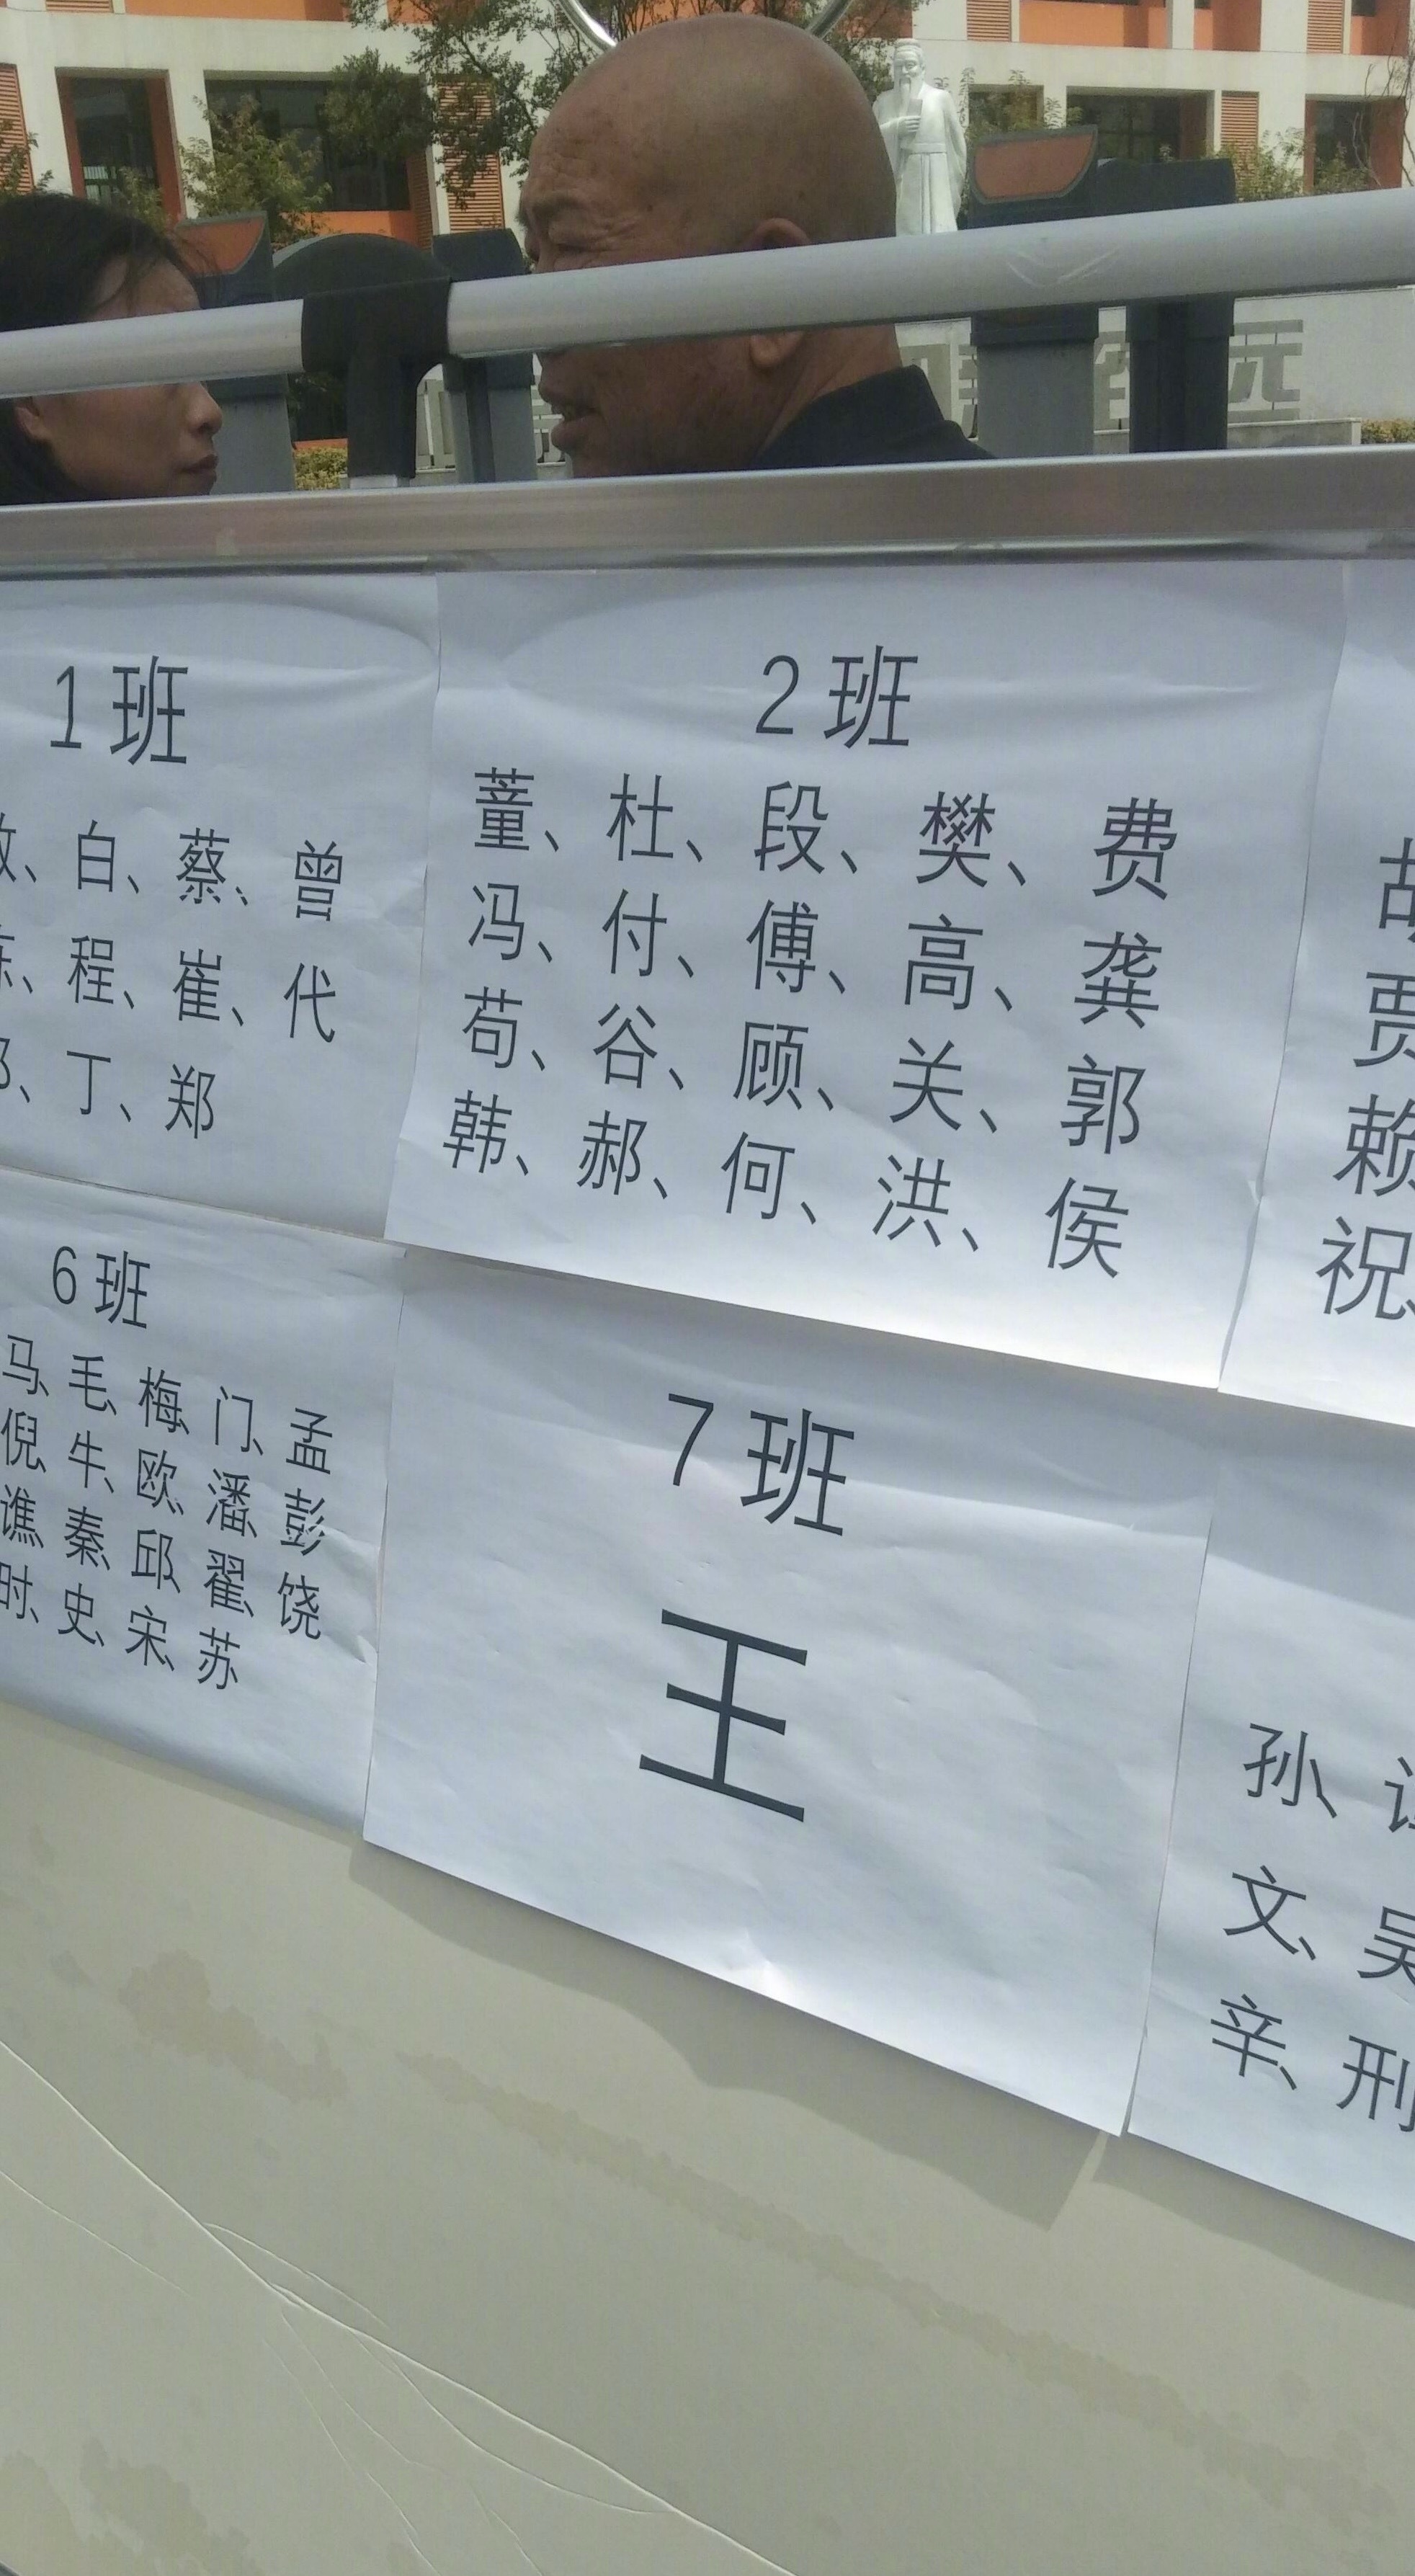 1班
白、蔡、曾
程、崔、代
丁、郑
2班
董、杜、段、樊、费
冯、付、傅、高、龚
苟、谷、顾、关、郭
韩、郝、何、洪、侯
胡
贾
赖
祝、
6班
马、毛、梅、门、孟
倪、牛、欧、潘、彭
谯、秦、邱、翟、饶
时、史、宋、苏
7班
王
孙、
文、吴
辛、刑